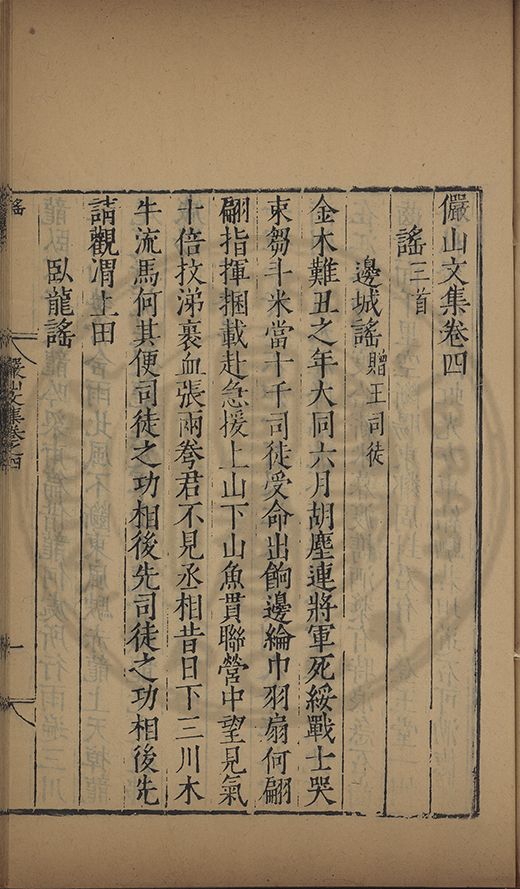 儼山文集卷四
謠三首
邊城謠贈王司徒
金木難丑之年大同六月胡塵連將軍死綏戰士哭
束芻斗米當十千司徒受命出餉邊綸巾羽扇何翩
翩指揮捆載赴急援上山下山魚貫聯營中望見氣
十倍抆涕裹血張兩弮君不見丞相昔日下三川木
牛流馬何其便司徒之功相後先司徒之功相後先
請觀渭上田
臥龍謠
謠
儼山文集卷四
一